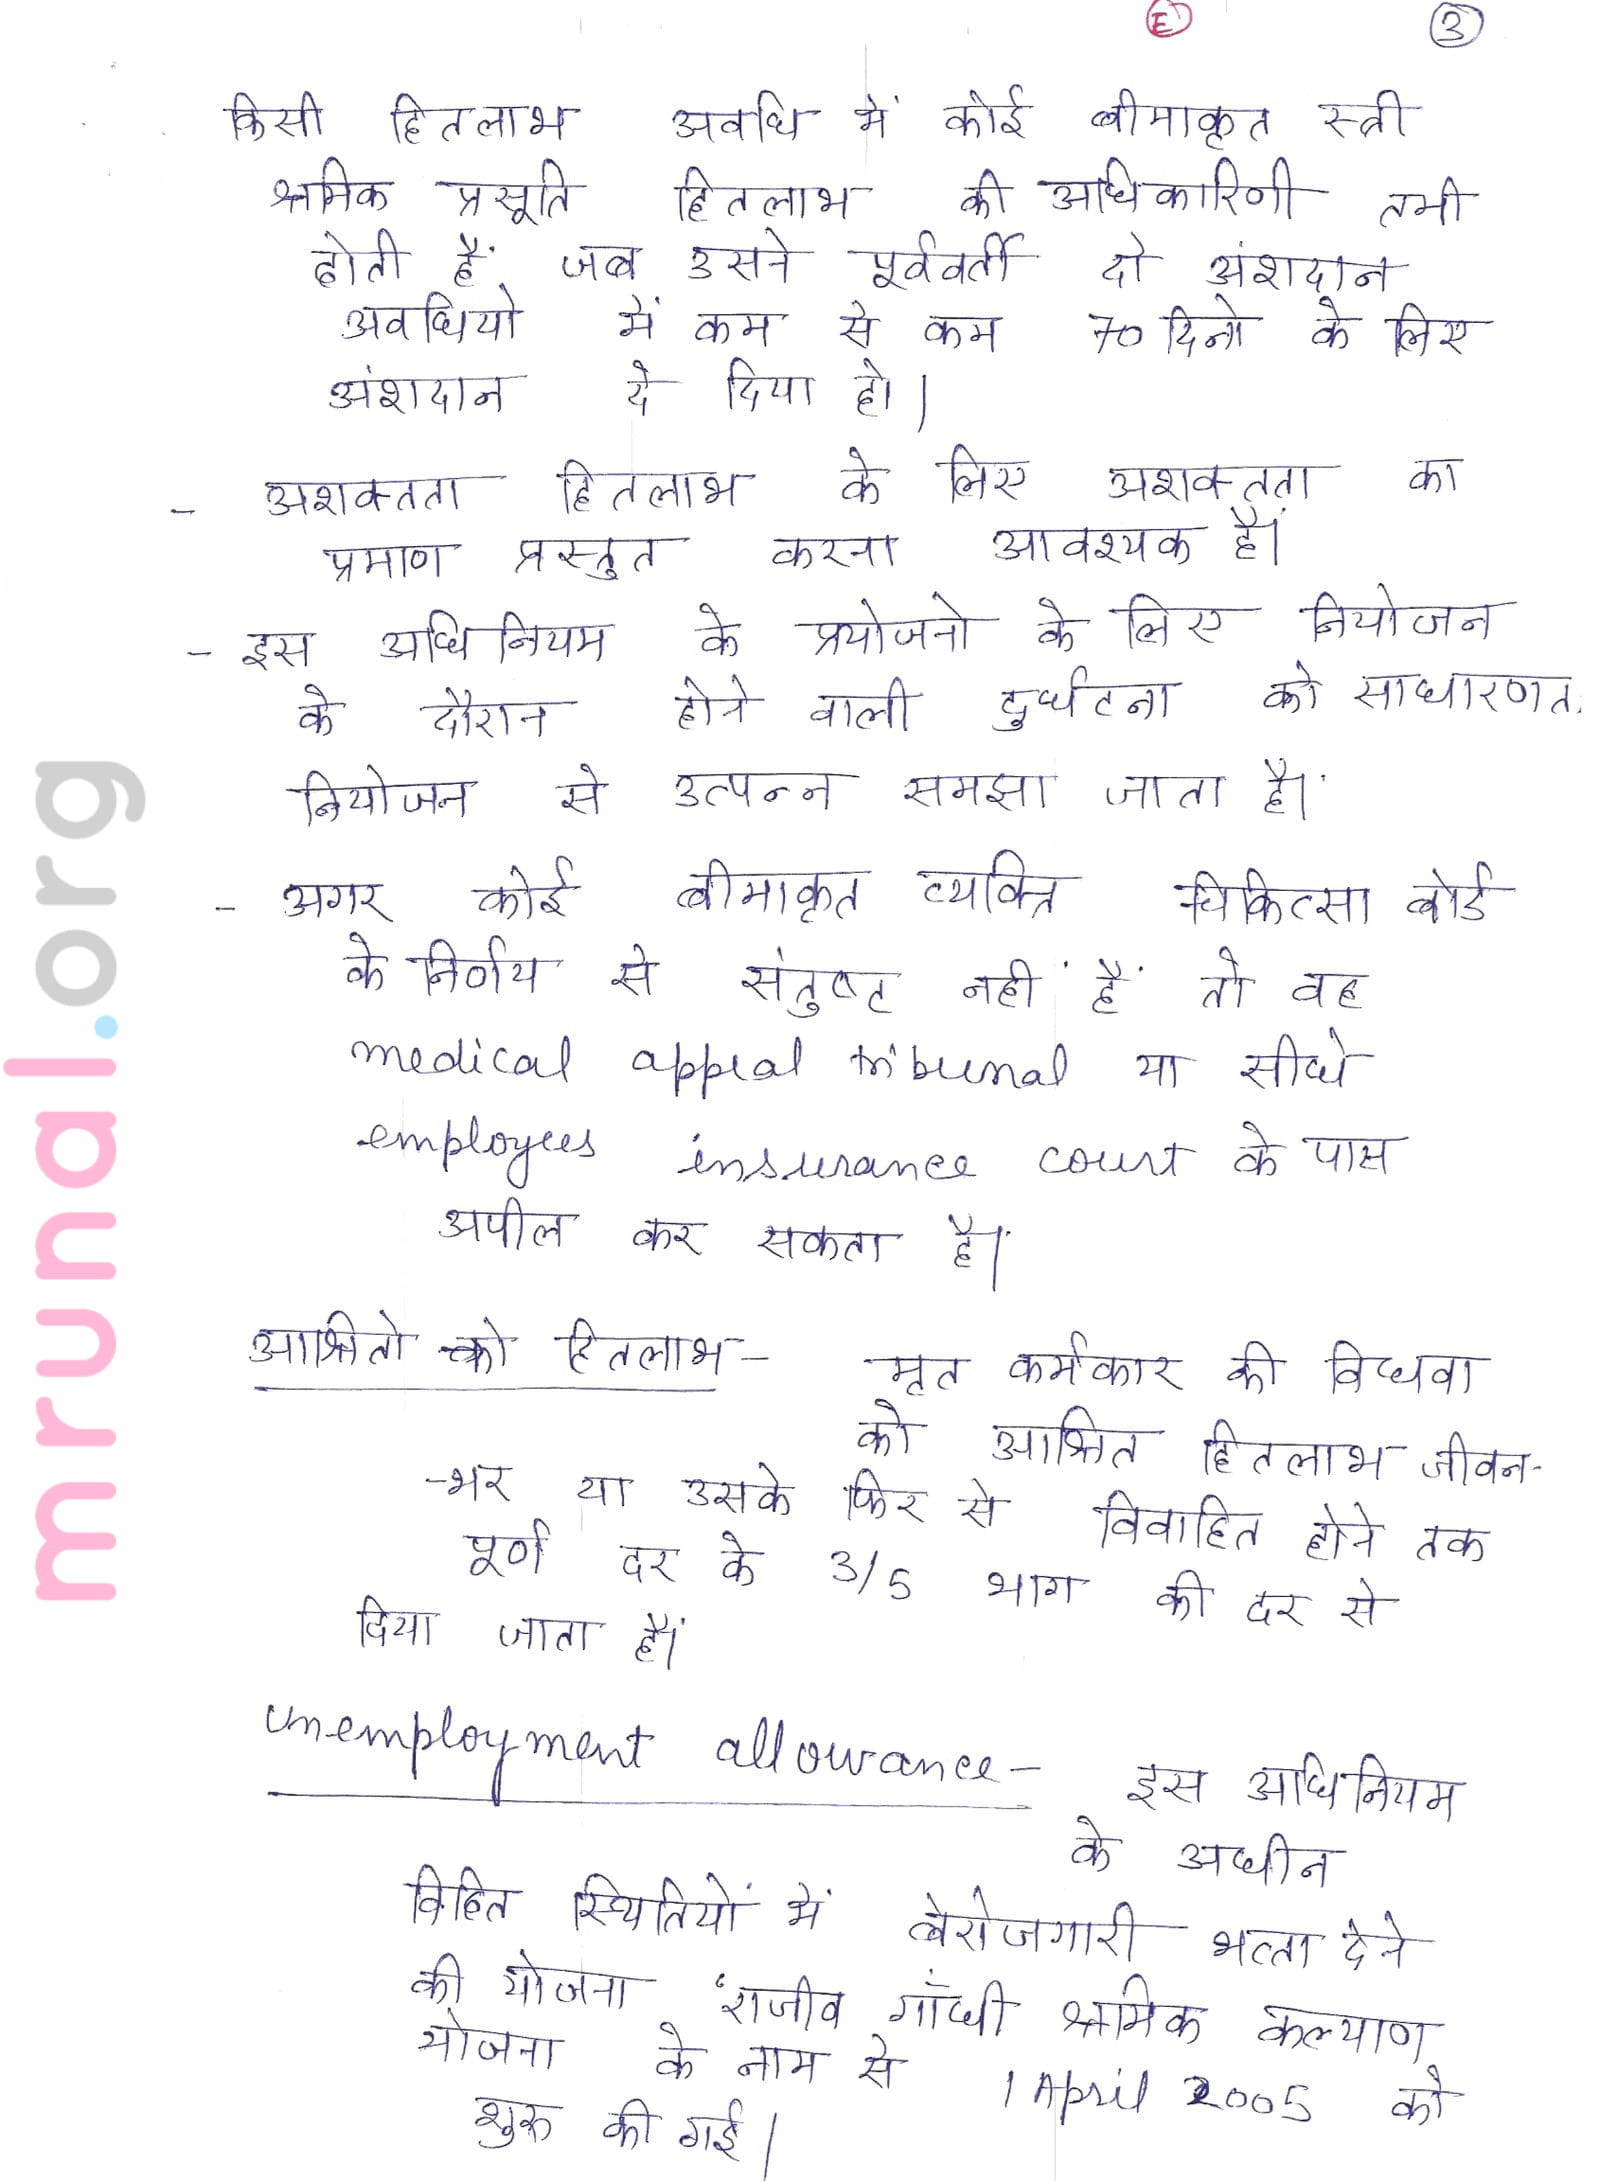 E 3
किसी हितलाभ अवधि में कोई बीमाकृत स्त्री
श्रमिक प्रसूति हितलाभ की अधिकारिणी तभी
होती हैं जब उसने पूर्ववर्ती दो अंशदान
अवधियो में कम से कम 70 दिनो के लिए
अंशदान दे दिया हो।
- अशक्तता हितलाभ के लिए अशक्तता का
प्रमाण प्रस्तुत करना आवश्यक हैं।
- इस अधिनियम के प्रयोजनो के लिए नियोजन
के दौरान होने वाली दुर्घटना को साधारणत:
नियोजन से उत्पन्न समझा जाता है।
- अगर कोई बीमाकृत व्यक्ति चिकित्सा बोर्ड
के निर्णय से संतुष्ट नहीं हैं तो वह
medical appeal tribunal या सीधे
employees insurance court के पास
अपील कर सकता है।
आश्रितो को हितलाभ - मृत कर्मकार की विधवा
को आश्रित हितलाभ जीवन-
-भर या उसके फिर से विवाहित होने तक
पूर्ण दर के 3/5 भाग की दर से
दिया जाता हैं।
unemployment allowance - इस अधिनियम
के अधीन
विहित स्थितियों में बेरोजगारी भत्ता देने
की योजना 'राजीव गाँधी श्रमिक कल्याण
योजना के नाम से 1 April 2005 को
शुरू की गई।
mrunal.org